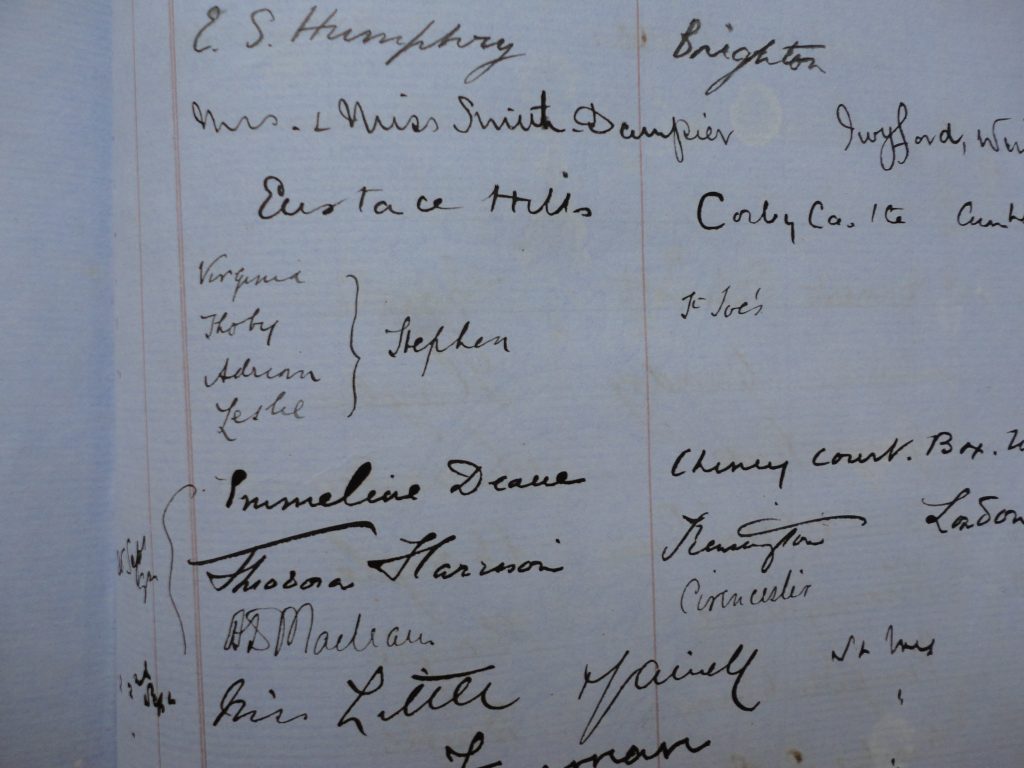 E. S. Humphry Brighton
Mrs. & Miss Smith-Dampier Twyford, Win
Eustace Hills Corby Castle Cumb
Virginia
Thoby
Stephen St Ive's
Adrian
Leslie
Emmeline Deane Cheney Court. Box.
Theodora Harrison Kensington London
Maclean Cirencester
Miss Little St Ives